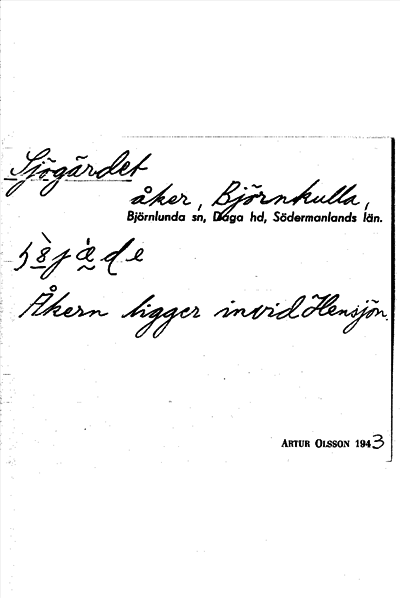 Sjögärdet
åker, Björnkulla,
Björnlunda sn, Daga hd, Södermanlands län.
Åkern ligger invid Hensjön.
ARTUR OLSSON 1943